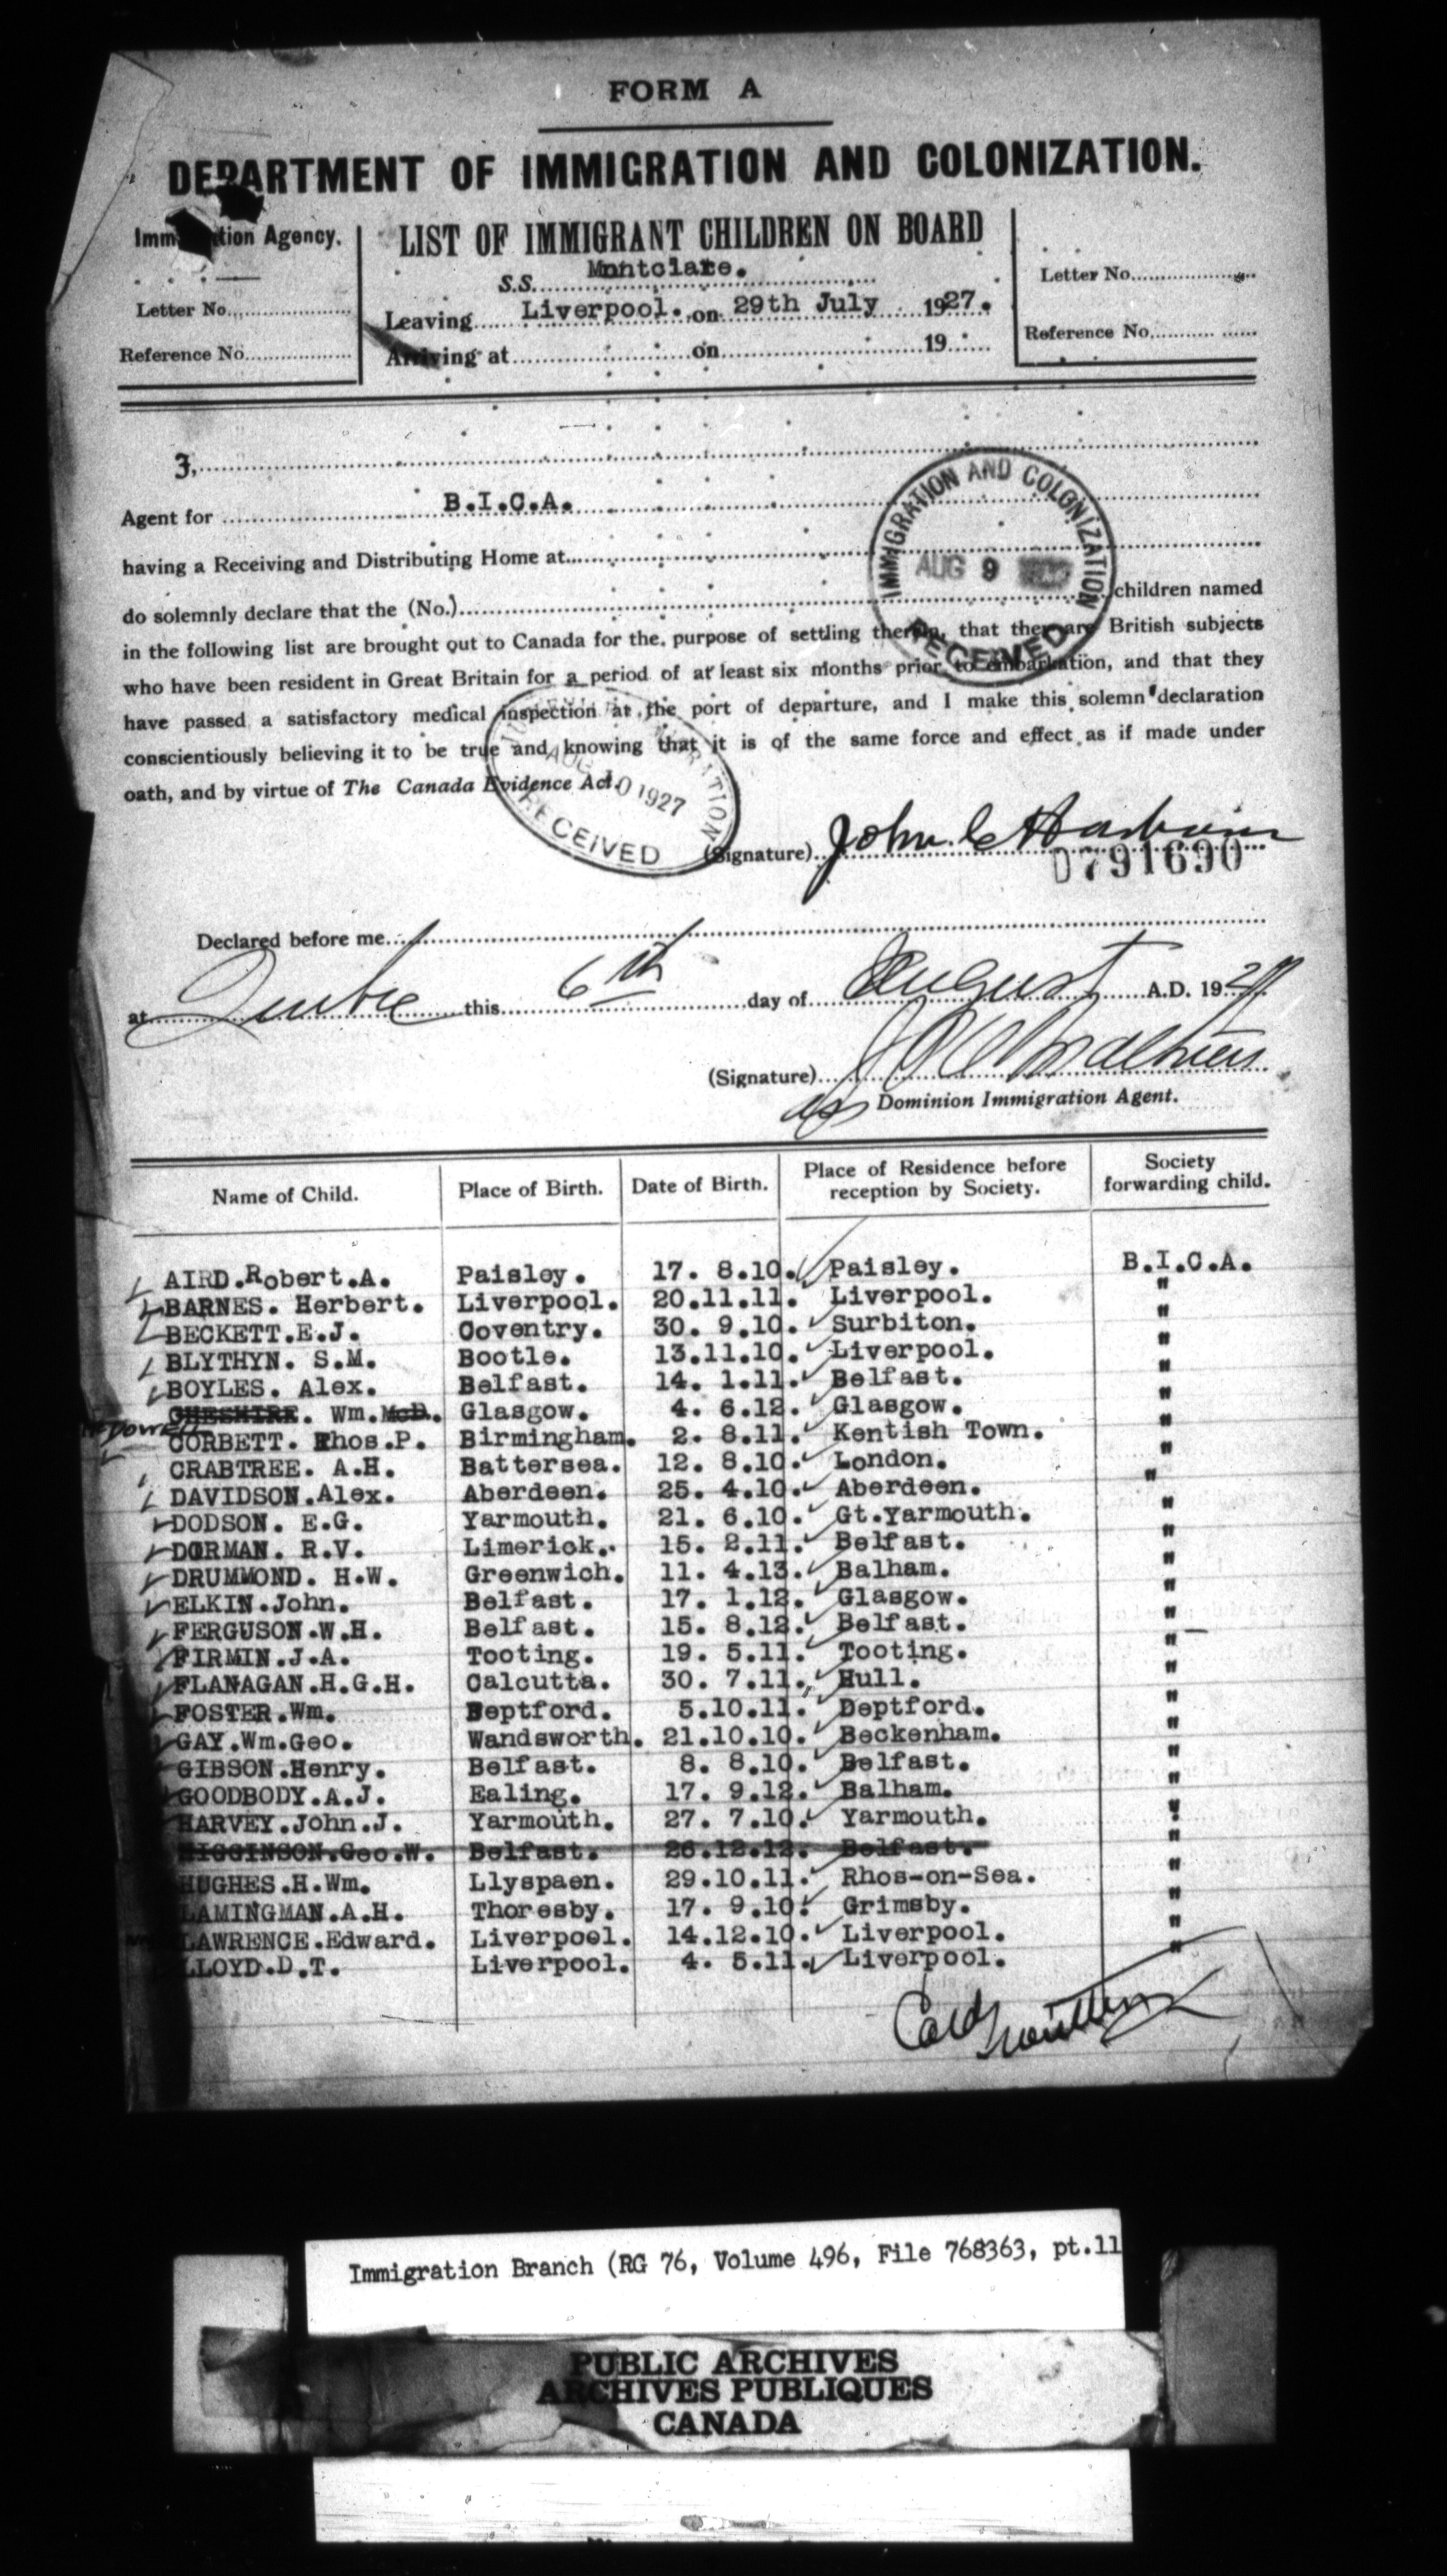 FORM A
DEPARTMENT OF IMMIGRATION AND COLONIZATION.
Immigration Agency.
Letter No.
Reference No.
LIST OF IMMIGRANT CHILDREN ON BOARD
S.S. Montclare.
Leaving Liverpool. on 29th July 1927.
Arriving at on 19
Letter No.
Reference No.
I,
Agent for B.I.C.A.
having a Receiving and Distributing Home at
do solemnly declare that the (No.) children named
in the following list are brought out to Canada for the purpose of settling therein, that they are British subjects
who have been resident in Great Britain for a period of at least six months prior to embarkation, and that they
have passed a satisfactory medical inspection at the port of departure, and I make this solemn declaration
conscientiously believing it to be true and knowing that it is of the same force and effect as if made under
oath, and by virtue of The Canada Evidence Act.
IMMIGRATION AND COLONIZATION
AUG 9
RECEIVED
AUG 10 1927
RECEIVED
(Signature) John C
0791690
Declared before me
at Quebec this 6th day of August A.D. 1927
(Signature)
Dominion Immigration Agent.
Name of Child. Place of Birth. Date of Birth. Place of Residence before reception by Society. Society forwarding child.
AIRD.Robert.A. Paisley. 17. 8.10. Paisley. B.I.C.A.
BARNES. Herbert. Liverpool. 20.11.11. Liverpool. "
BECKETT.E.J. Coventry. 30. 9.10. Surbiton. "
BLYTHYN. S.M. Bootle. 13.11.10. Liverpool. "
BOYLES. Alex. Belfast. 14. 1.11. Belfast. "
McDowell CHESHIRE. Wm.McD. Glasgow. 4. 6.12. Glasgow. "
CORBETT. Thos.P. Birmingham. 2. 8.11. Kentish Town. "
CRABTREE. A.H. Battersea. 12. 8.10. London. "
DAVIDSON.Alex. Aberdeen. 25. 4.10. Aberdeen. "
DODSON. E.G. Yarmouth. 21. 6.10. Gt.Yarmouth. "
DORMAN. R.V. Limerick. 15. 2.11. Belfast. "
DRUMMOND. H.W. Greenwich. 11. 4.13. Balham. "
ELKIN.John. Belfast. 17. 1.12. Glasgow. "
FERGUSON.W.H. Belfast. 15. 8.12. Belfast. "
FIRMIN.J.A. Tooting. 19. 5.11. Tooting. "
FLANAGAN.H.G.H. Calcutta. 30. 7.11. Hull. "
FOSTER.Wm. Deptford. 5.10.11. Deptford. "
GAY.Wm.Geo. Wandsworth. 21.10.10. Beckenham. "
GIBSON.Henry. Belfast. 8. 8.10. Belfast. "
GOODBODY.A.J. Ealing. 17. 9.12. Balham. "
HARVEY.John.J. Yarmouth. 27. 7.10. Yarmouth. "
HIGGINSON.Geo.W. Belfast. 26.12.12. Belfast. "
HUGHES.H.Wm. Llyspaen. 29.10.11. Rhos-on-Sea. "
LAMINGMAN.A.H. Thoresby. 17. 9.10. Grimsby. "
LAWRENCE.Edward. Liverpool. 14.12.10. Liverpool. "
LLOYD.D.T. Liverpool. 4. 5.11. Liverpool. "
Immigration Branch (RG 76, Volume 496, File 768363, pt.11
PUBLIC ARCHIVES
ARCHIVES PUBLIQUES
CANADA